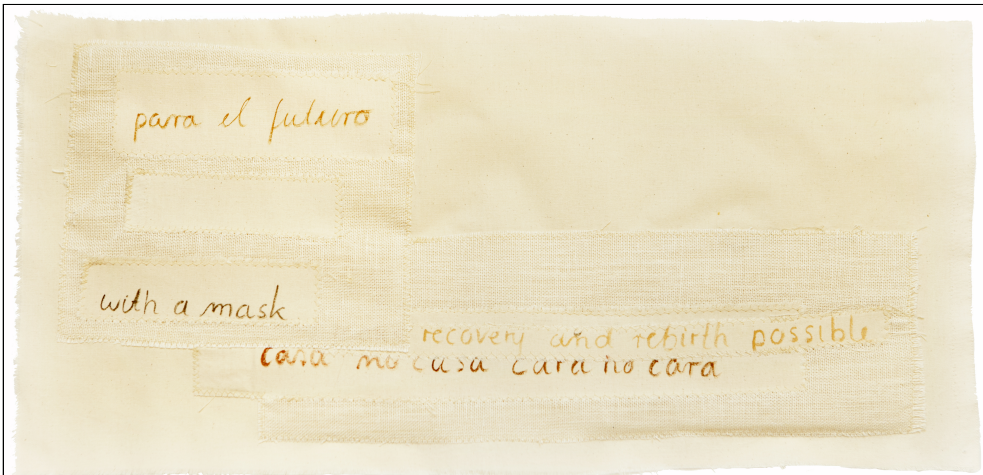 para el futuro
with a mask
recovery and rebirth possible
casa no casa cara no cara